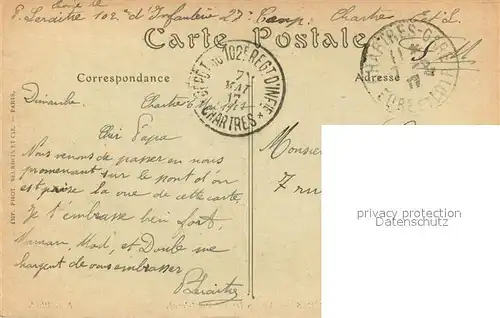 P. Lecaitre 102e d'Infanterie 27e Comp. Chartres
S. M.
Carte Postale
Correspondance
Adresse
DÉPÔT DU 102E REGT D'INFIE
7
MAI
17
CHARTRES
CHARTRES-GARE
EURE-ET-LOIR
Dimanche
Chartres 6 Mai
Cher Papa
Nous venons de passer en nous
promenant sur le pont d'où
est prise la vue de cette carte
Je t'embrasse bien fort,
Maman, et me
chargent de vous embrasser
Monsieur
7 rue
IMP. PHOT. ET CIE. — PARIS.
properties watermark
PROPERTIES (Datenschutz)